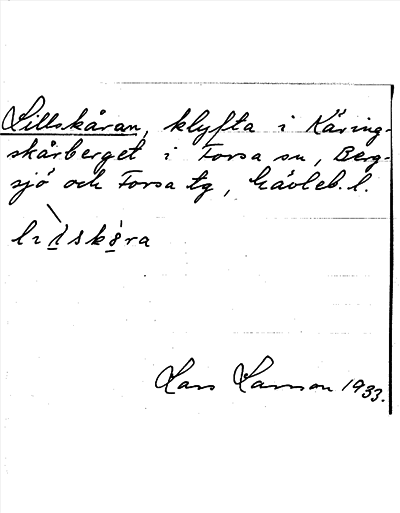 Lillskåran, klyfta i Käring-
skårberget i Forsa sn, Berg-
sjö och Forsa tg, Gävleb. l.
Lars Larsson 1933.